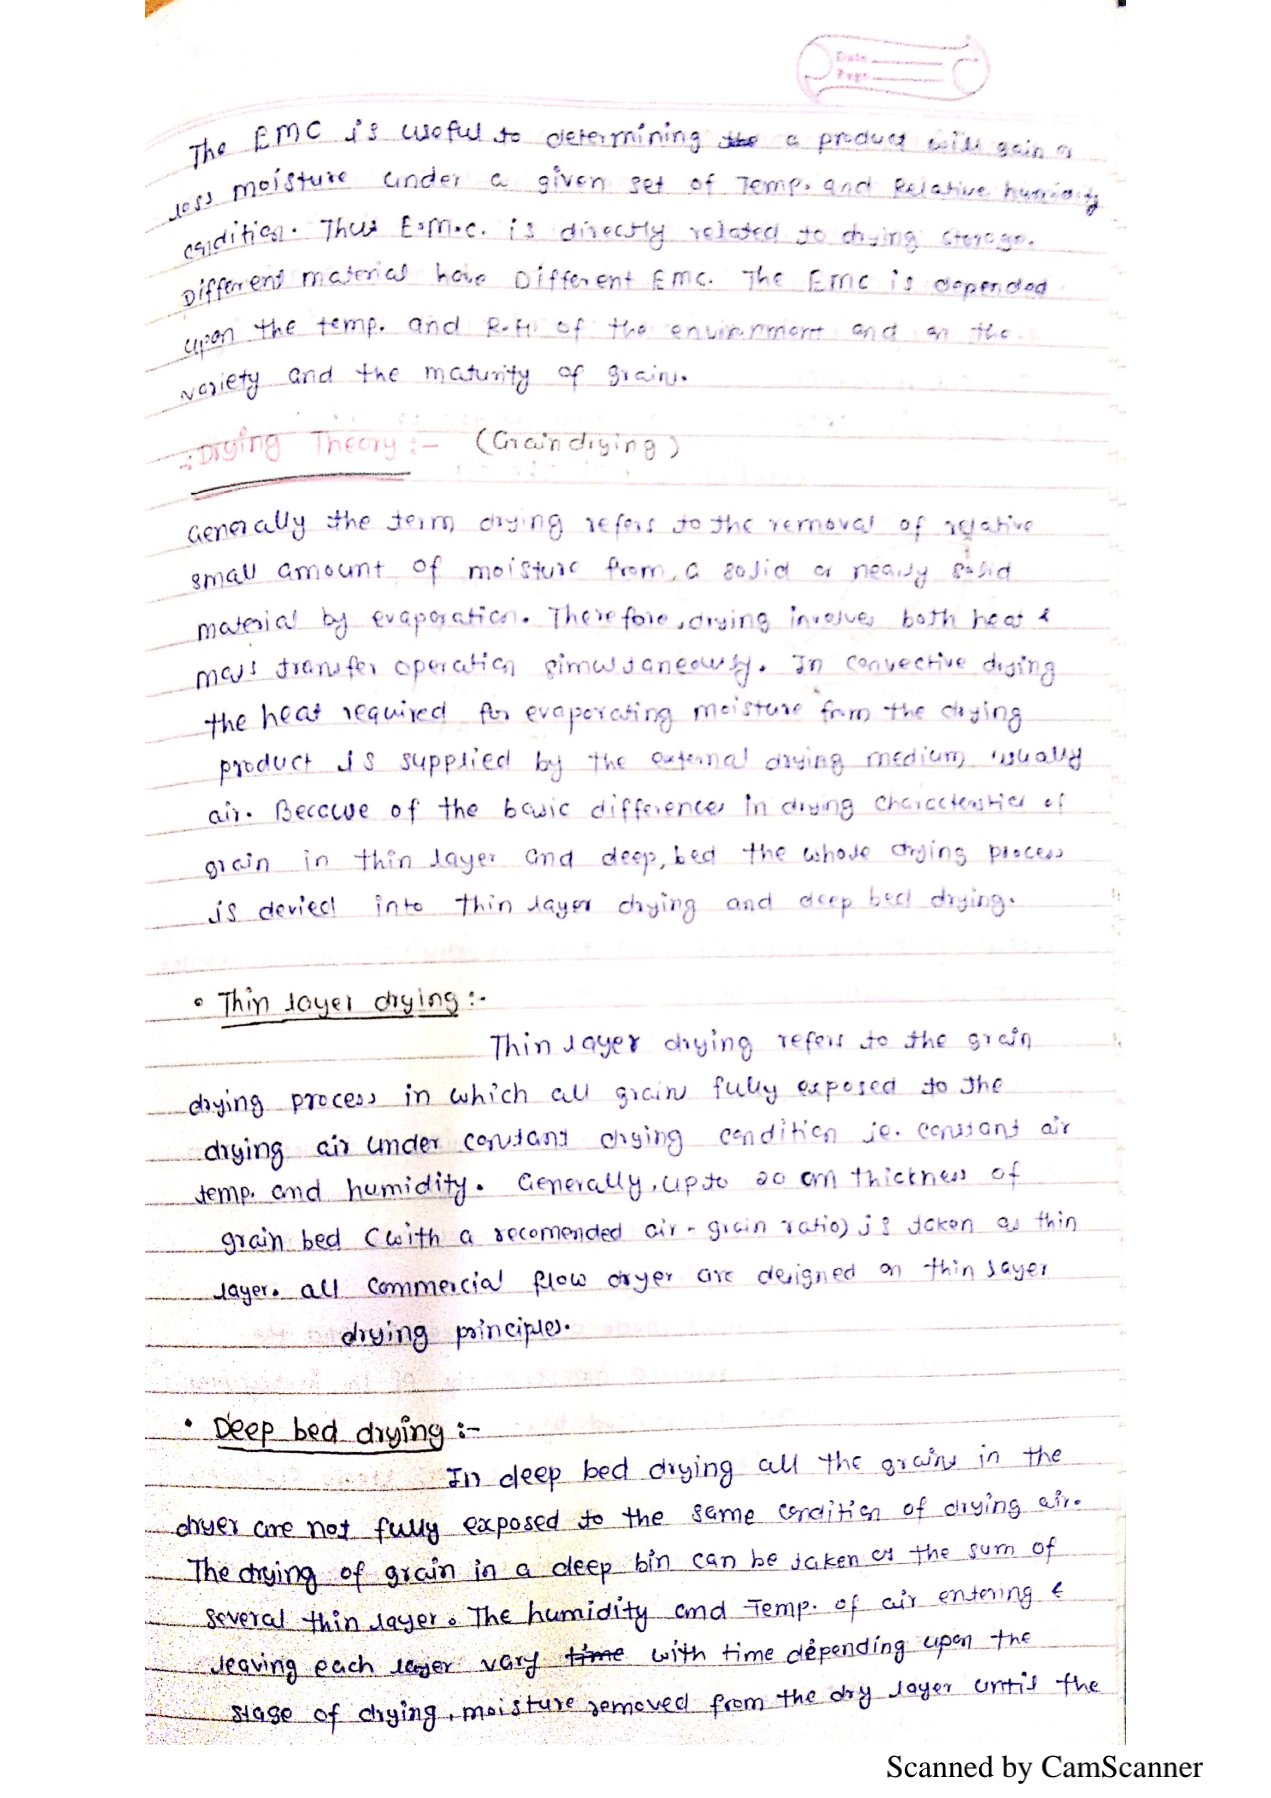 Date
Page
The EMC is useful to determining the a product will gain or
loss moisture under a given set of Temp. and Relative humidity
condition. Thus E.M.C. is directly related to drying storage.
Different material have Different EMC. The EMC is depended
upon the temp. and R.H. of the envirnment and on the
variety and the maturity of grain.
:Drying Theory:- (Grain drying)
Generally the term drying refers to the removal of relative
small amount of moisture from a solid or nearly solid
material by evaporation. Therefore, drying involves both heat &
mass transfer operation simultaneously. In convective drying
the heat required for evaporating moisture from the drying
product is supplied by the external drying medium usually
air. Because of the basic differences in drying characterstics of
grain in thin layer and deep bed the whole drying process
is devied into thin layer drying and deep bed drying.
• Thin layer drying:-
Thin layer drying refers to the grain
drying process in which all grains fully exposed to the
drying air under constant drying condition ie. constant air
temp. and humidity. Generally, up to 20 cm thickness of
grain bed (with a recomended air-grain ratio) is taken as thin
layer. all commercial flow dryer are designed on thin layer
drying principles.
• Deep bed drying:-
In deep bed drying all the grains in the
dryer are not fully exposed to the same condition of drying air.
The drying of grain in a deep bin can be taken as the sum of
several thin layer. The humidity and Temp. of air entering &
leaving each layer vary time with time depending upon the
stage of drying, moisture removed from the dry layer until the
Scanned by CamScanner